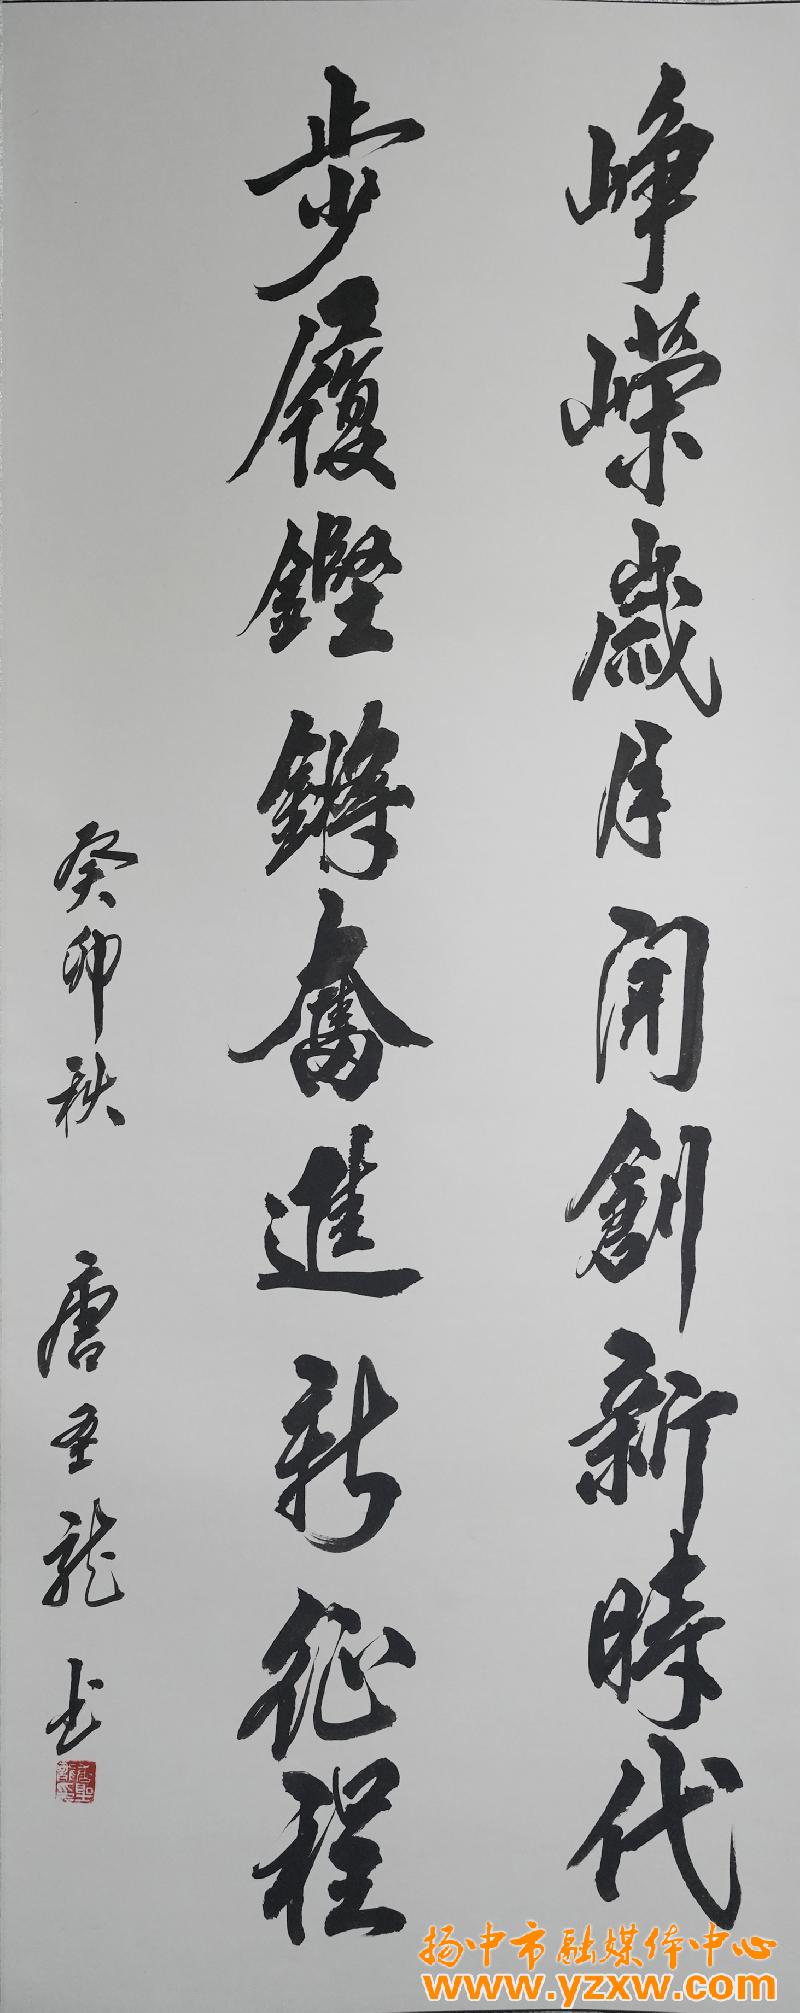 崢嶸歲月開創新時代
步履鏗鏘奮進新征程
癸卯秋 唐圣龍书
唐聖龍印
扬中市融媒体中心
www.yzxw.com